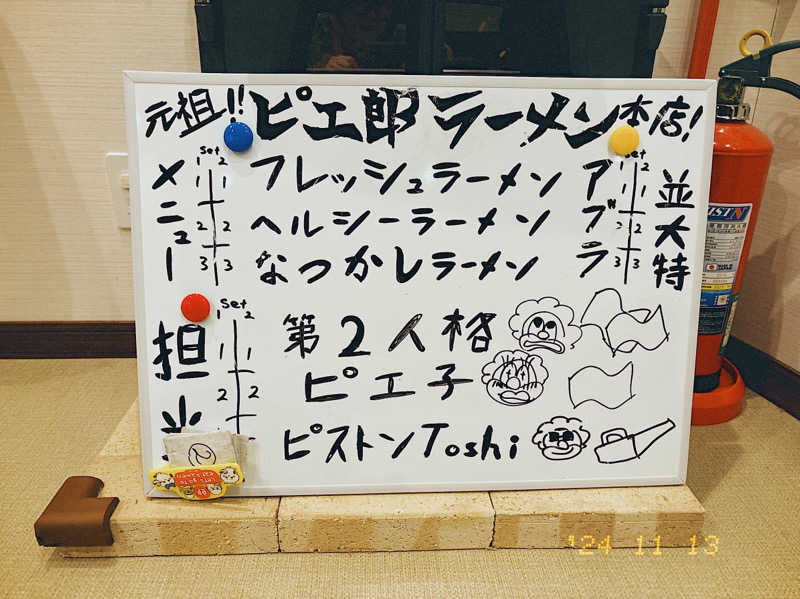 元祖!! ピエ郎ラーメン本店!
メニュー
set
1 2
1 1
2 2
3 3
フレッシュラーメン
ヘルシーラーメン
なつかしラーメン
アブラ
set
1 2
1 1
2 2
3 3
並大特
担当
set
1 2
1 1
2 2
第2人格
ピエ子
ピストンToshi
'24 11 13